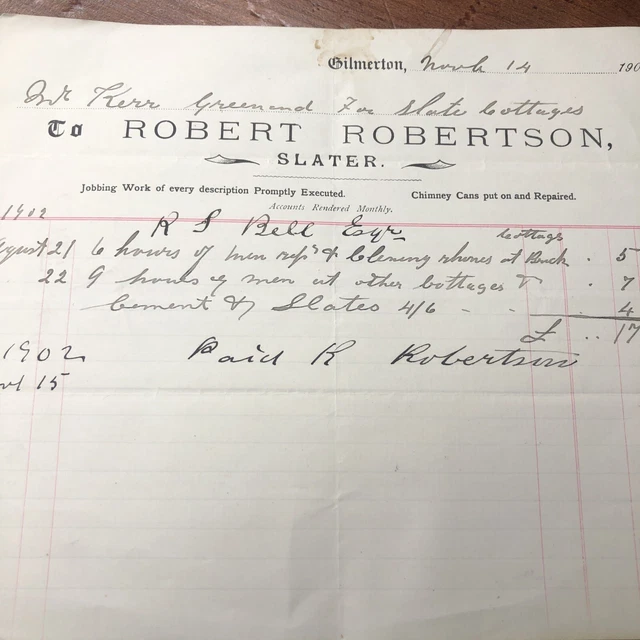 Gilmerton, Novb 14 190
Mr Kerr Greenend For Slate Cottages
To ROBERT ROBERTSON,
SLATER.
Jobbing Work of every description Promptly Executed. Chimney Cans put on and Repaired.
Accounts Rendered Monthly.
1902 R S Bell Esqr
cottage
August 21 6 hours of men repg & Clening rhones at Buck . 5
22 9 hours of men at other Cottages & . 7
Cement & Slates 4/6 - - 4
£ .. 17
1902 Paid R Robertson
15